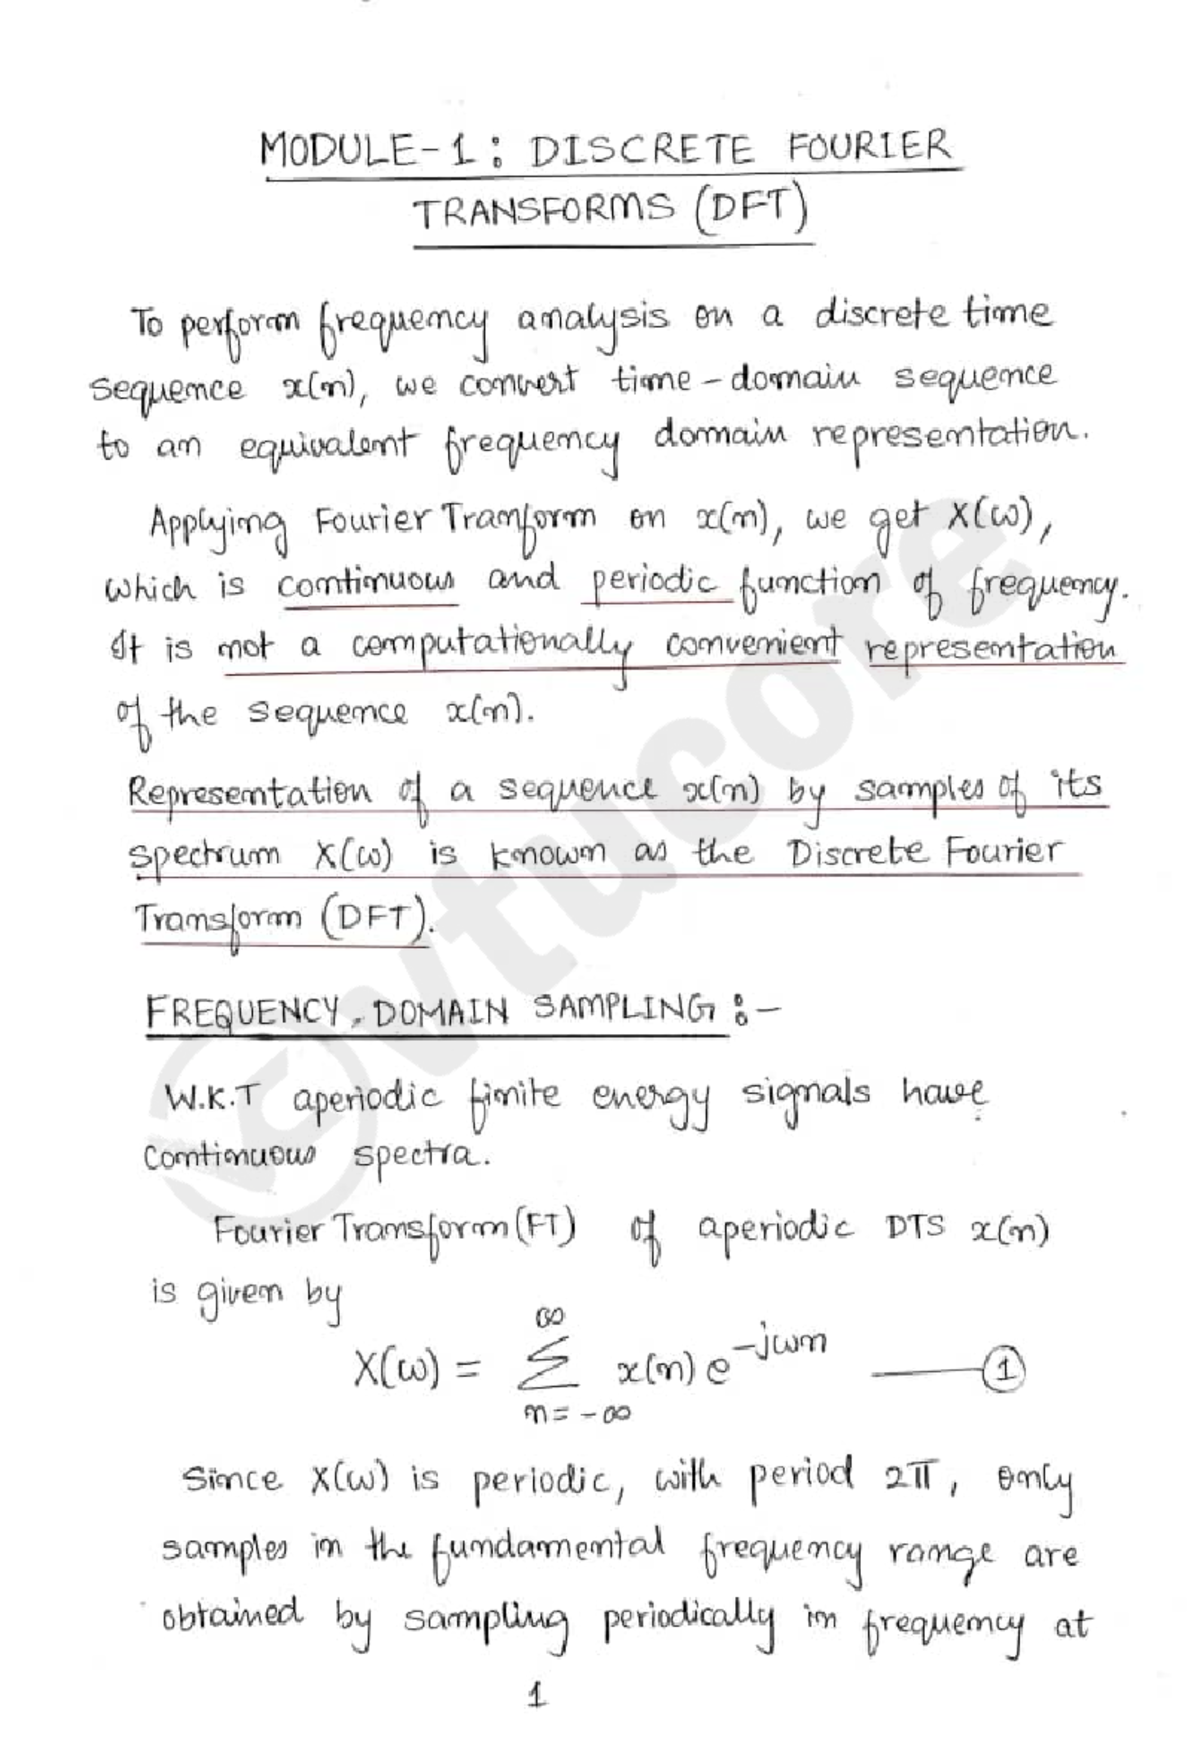 MODULE-1: DISCRETE FOURIER
TRANSFORMS (DFT)
To perform frequency analysis on a discrete time
sequence x(n), we convert time-domain sequence
to an equivalent frequency domain representation.
Applying Fourier Tranform on x(n), we get X(ω),
which is continuous and periodic function of frequency.
It is not a computationally convenient representation
of the sequence x(n).
Representation of a sequence x(n) by samples of its
spectrum X(ω) is known as the Discrete Fourier
Transform (DFT).
FREQUENCY-DOMAIN SAMPLING :-
W.K.T aperiodic finite energy signals have
continuous spectra.
Fourier Transform (FT) of aperiodic DTS x(n)
is given by
X(ω) = ∑_{n=-∞}^{∞} x(n) e^{-jωn} —— ①
Since X(ω) is periodic, with period 2π, only
samples in the fundamental frequency range are
obtained by sampling periodically in frequency at
1
vtucore